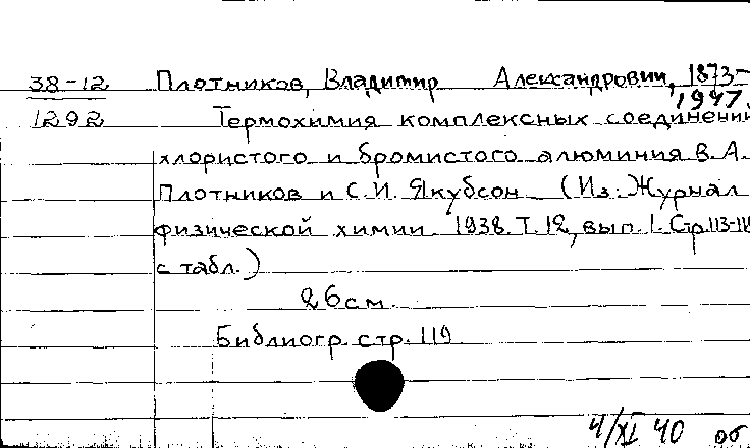 38-12 Плотников, Владимир Александрович, 1873-
1947.
1292 Термохимия комплексных соединений
хлористого и бромистого алюминия В. А.
Плотников и С. И. Якубсон (Из: Журнал
физической химии. 1938. Т. 12, вып. 1. Стр. 113-
с табл.)
26 см.
Библиогр. стр. 119
4/XI 40 об